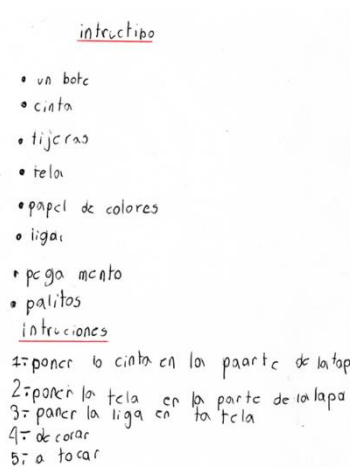 intructibo
• un bote
• cinta
• tijeras
• tela
• papel de colores
• liga
• pega mento
• palitos
intruciones
1-poner la cinta en la paarte de la tap
2-poner la tela en la parte de la tapa
3-paner la liga en la tela
4- de corar
5- a tocar